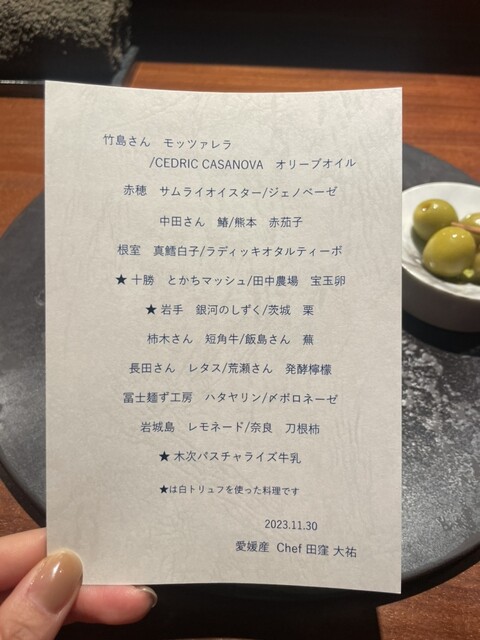 竹島さん　モッツァレラ
/CEDRIC CASANOVA　オリーブオイル
赤穂　サムライオイスター/ジェノベーゼ
中田さん　鰆/熊本　赤茄子
根室　真鱈白子/ラディッキオタルティーボ
★十勝　とかちマッシュ/田中農場　宝玉卵
★岩手　銀河のしずく/茨城　栗
柿木さん　短角牛/飯島さん　蕪
長田さん　レタス/荒瀬さん　発酵檸檬
冨士麺ず工房　ハタヤリン/〆ボロネーゼ
岩城島　レモネード/奈良　刀根柿
★木次パスチャライズ牛乳
★は白トリュフを使った料理です
2023.11.30
愛媛産　Chef 田窪 大祐